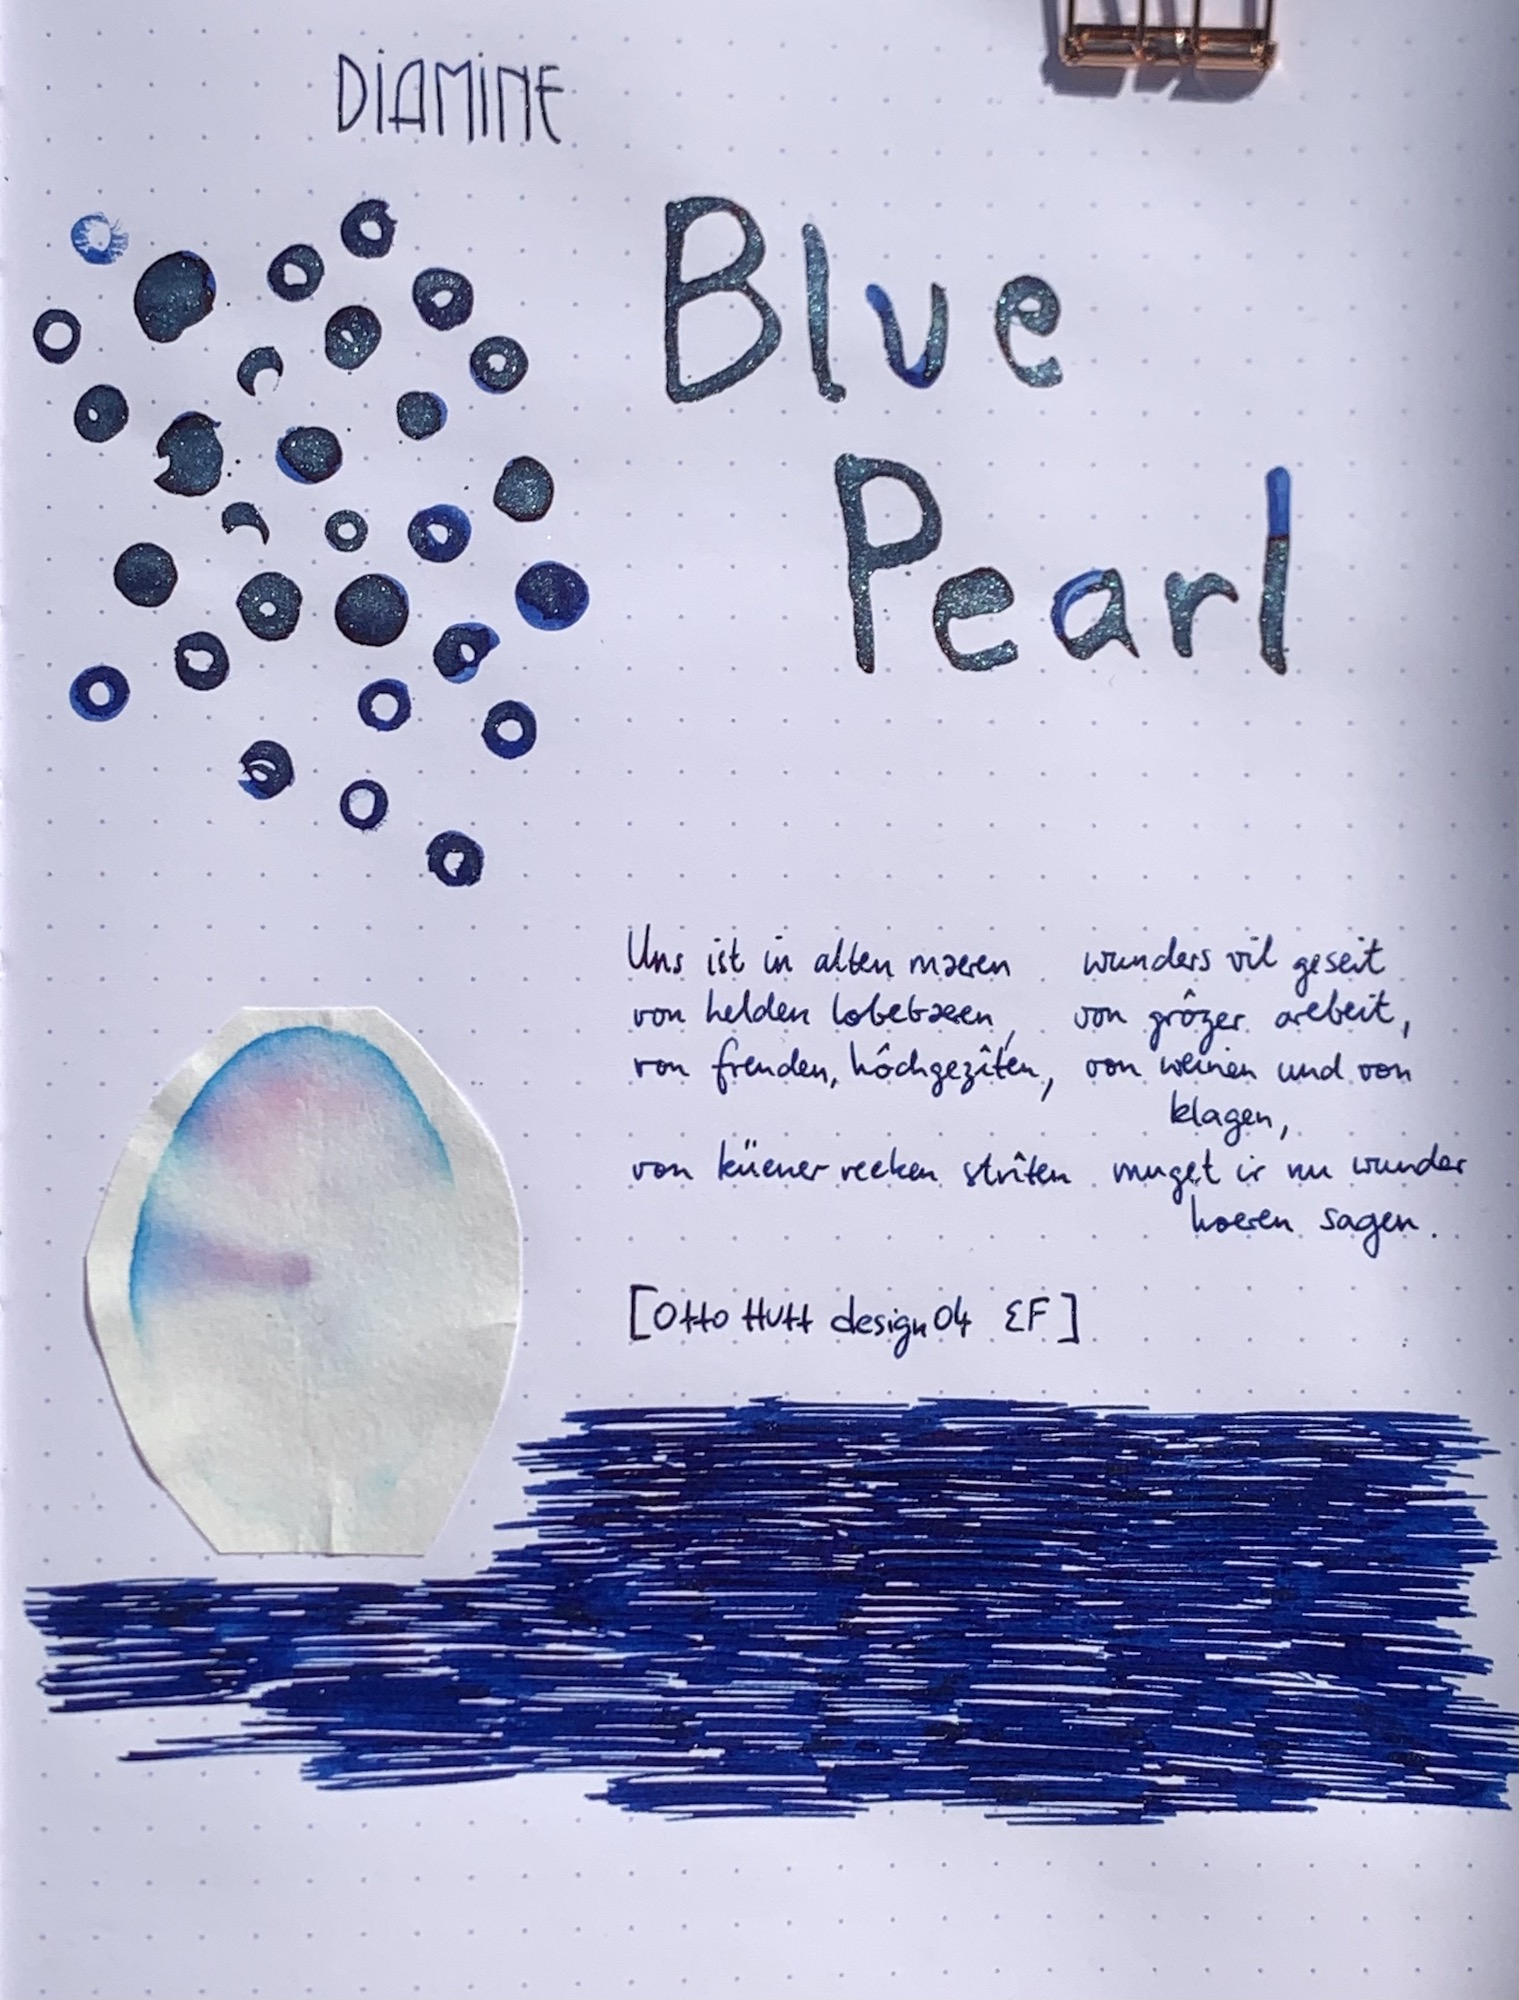 DIAMINE
Blue
Pearl
Uns ist in alten maeren wunders vil geseit
von helden lobebaeren, von grôzer arebeit,
von freuden, hôchgezîten, von weinen und von
klagen,
von küener recken strîten muget ir nu wunder
hoeren sagen.
[Otto Hutt design 04 EF]